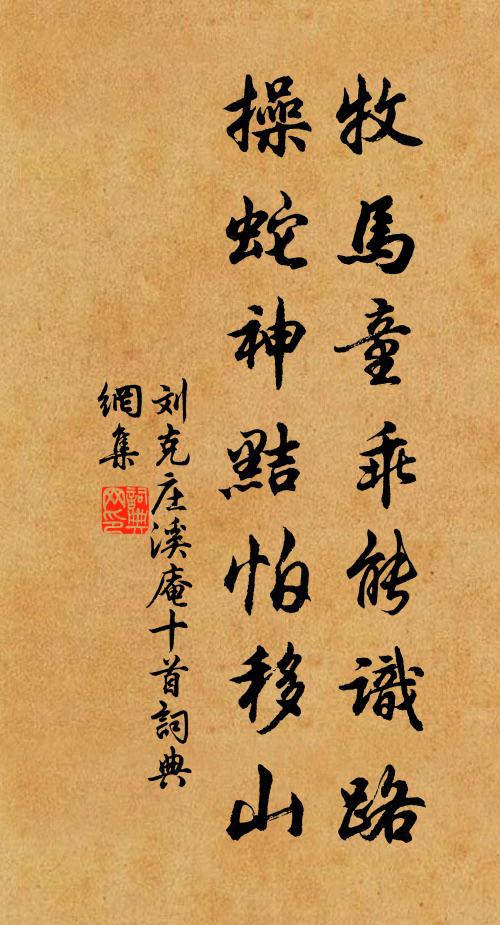 牧馬童乖能識路
操蛇神黠怕移山
刘克庄溪庵十首詞典
網集
詞典
网印